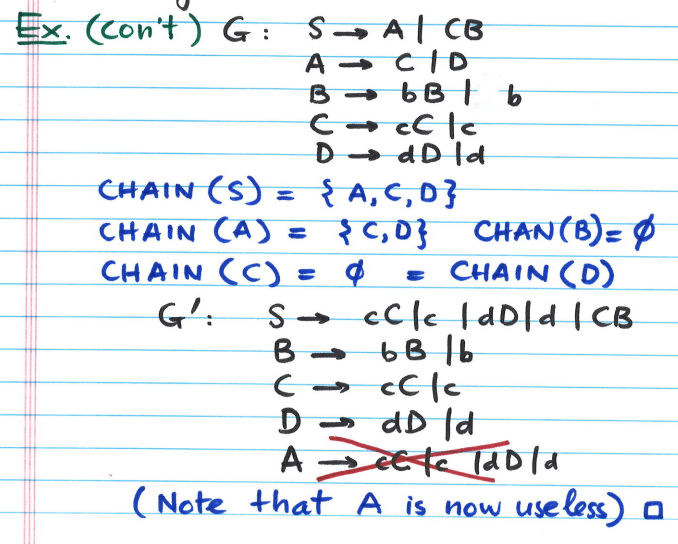 Ex. (con't) G: S → A | CB
A → C | D
B → bB | b
C → cC | c
D → dD | d
CHAIN (S) = { A, C, D }
CHAIN (A) = { C, D } CHAN(B) = ∅
CHAIN (C) = ∅ = CHAIN (D)
G': S → cC | c | dD | d | CB
B → bB | b
C → cC | c
D → dD | d
A → cC | c | dD | d
(Note that A is now useless) □